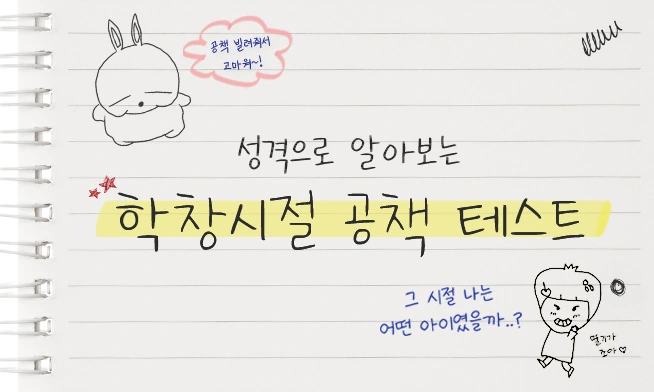 공책 빌려줘서
고마워~!
성격으로 알아보는
학창시절 공책 테스트
그 시절 나는
어떤 아이였을까..?
딸기가
조아♡